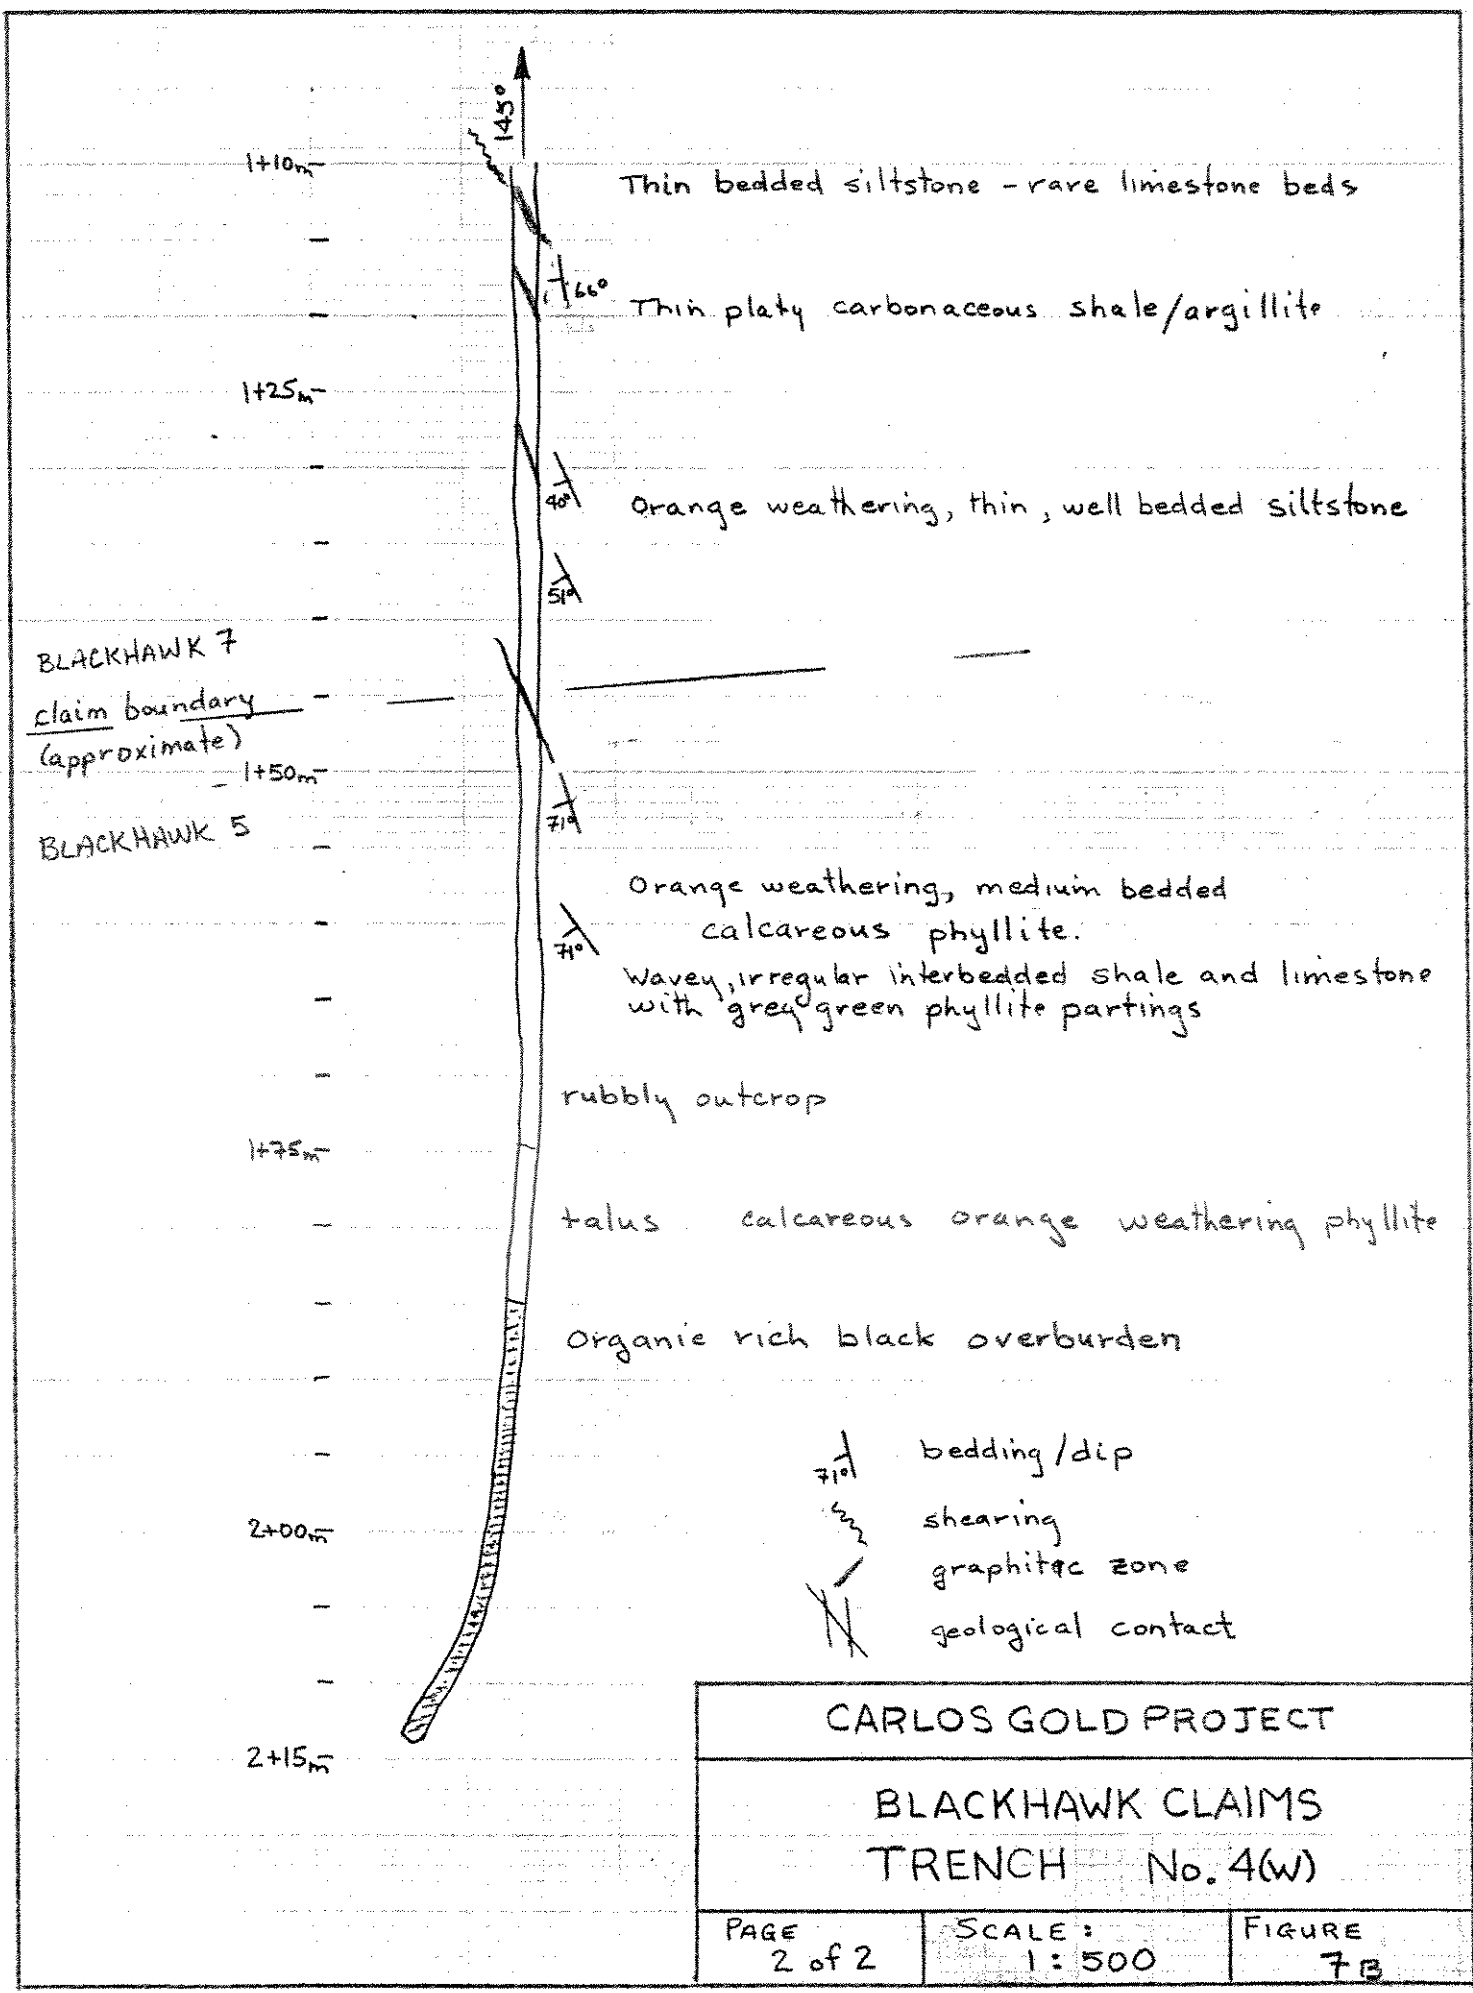 145°
1+10m
Thin bedded siltstone - rare limestone beds
66°
Thin platy carbonaceous shale/argillite
1+25m
40°
Orange weathering, thin, well bedded siltstone
51°
BLACKHAWK 7
claim boundary
(approximate)
1+50m
71°
BLACKHAWK 5
Orange weathering, medium bedded
calcareous phyllite.
71°
Wavey, irregular interbedded shale and limestone
with grey green phyllite partings
rubbly outcrop
1+75m
talus calcareous orange weathering phyllite
Organic rich black overburden
71° bedding/dip
shearing
2+00m
graphitic zone
geological contact
CARLOS GOLD PROJECT
2+15m
BLACKHAWK CLAIMS
TRENCH No. 4(W)
PAGE
2 of 2
SCALE:
1:500
FIGURE
7B